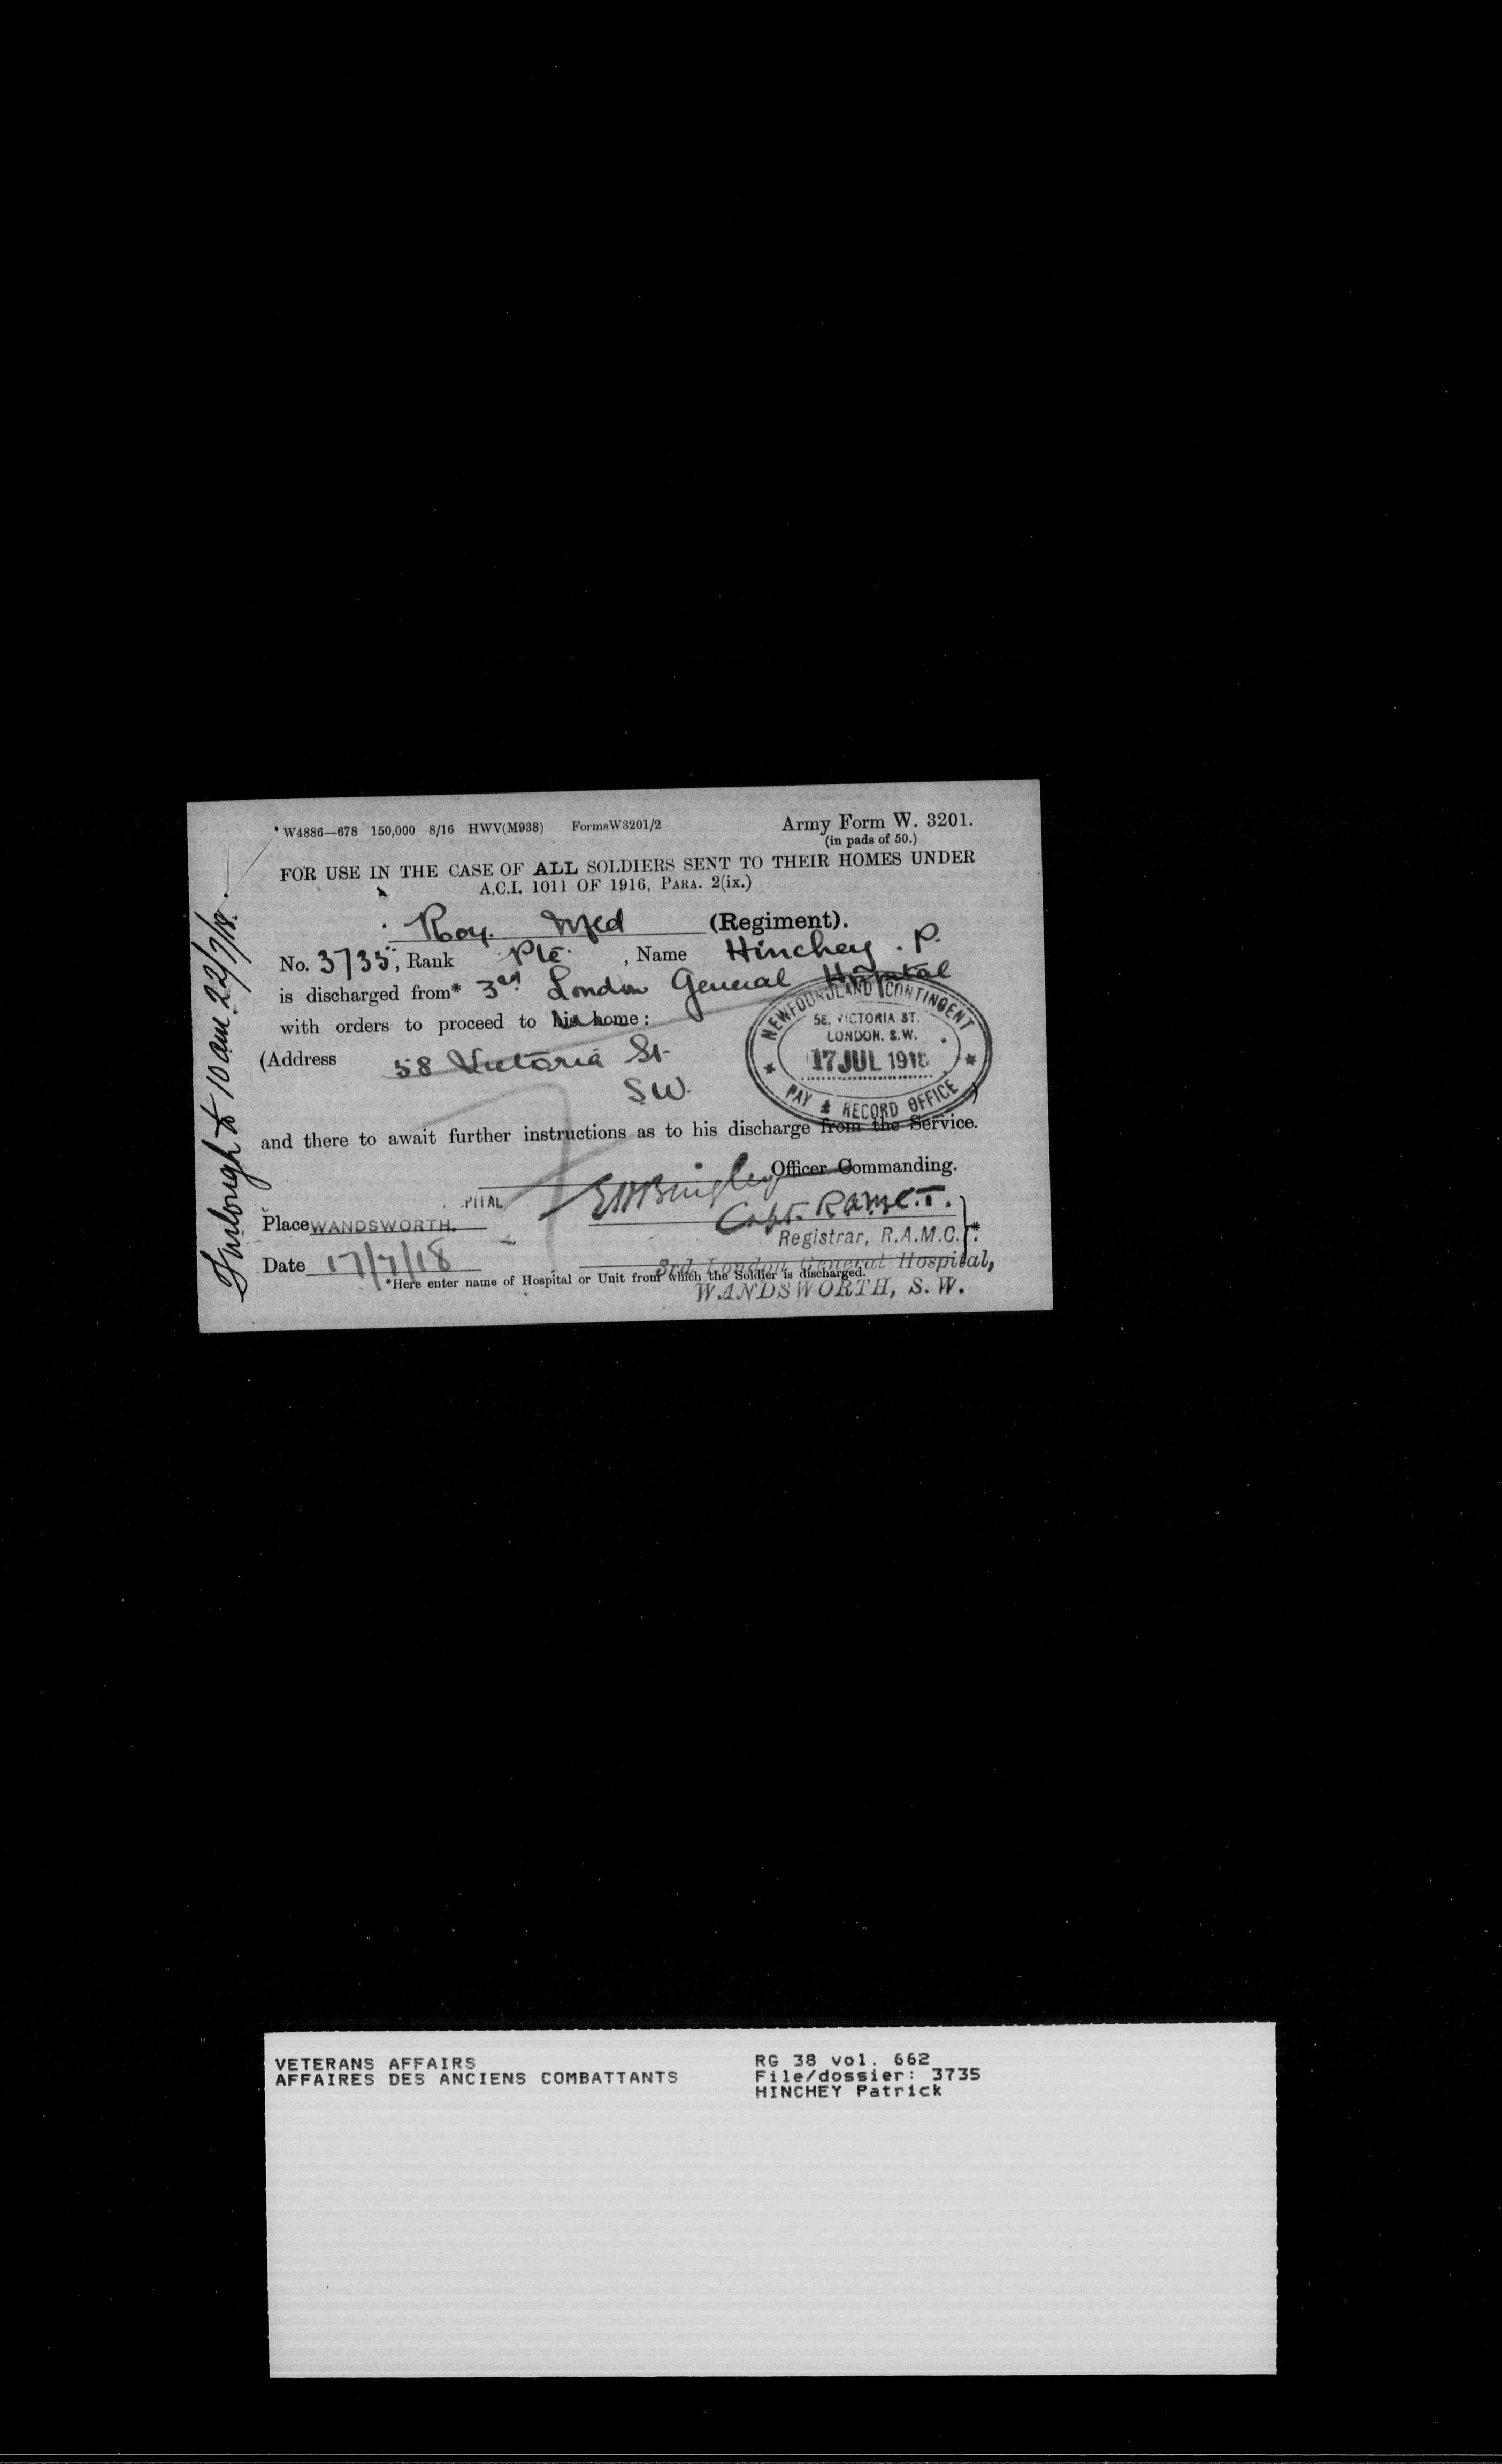 W4886—678 150,000 8/16 HWV(M938) FormsW3201/2
Army Form W. 3201.
(in pads of 50.)
FOR USE IN THE CASE OF ALL SOLDIERS SENT TO THEIR HOMES UNDER
A.C.I. 1011 OF 1916, PARA. 2(ix.)
Roy. Nfld (Regiment).
No. 3735, Rank Pte. , Name Hinchey . P.
is discharged from* 3rd London General Hospital
with orders to proceed to his home:
(Address 58 Victoria St.
S.W. )
NEWFOUNDLAND CONTINGENT
58, VICTORIA ST.
LONDON, S.W.
17 JUL 1918
PAY & RECORD OFFICE
and there to await further instructions as to his discharge from the Service.
Officer Commanding.
Capt. R.A.M.C.T.
PITAL
Place WANDSWORTH.
Registrar, R.A.M.C. *
Date 17/7/18
3rd London General Hospital,
*Here enter name of Hospital or Unit from which the Soldier is discharged.
WANDSWORTH, S. W.
Furlough to 10 am 22/7/18.
VETERANS AFFAIRS
AFFAIRES DES ANCIENS COMBATTANTS
RG 38 vol. 662
File/dossier: 3735
HINCHEY Patrick